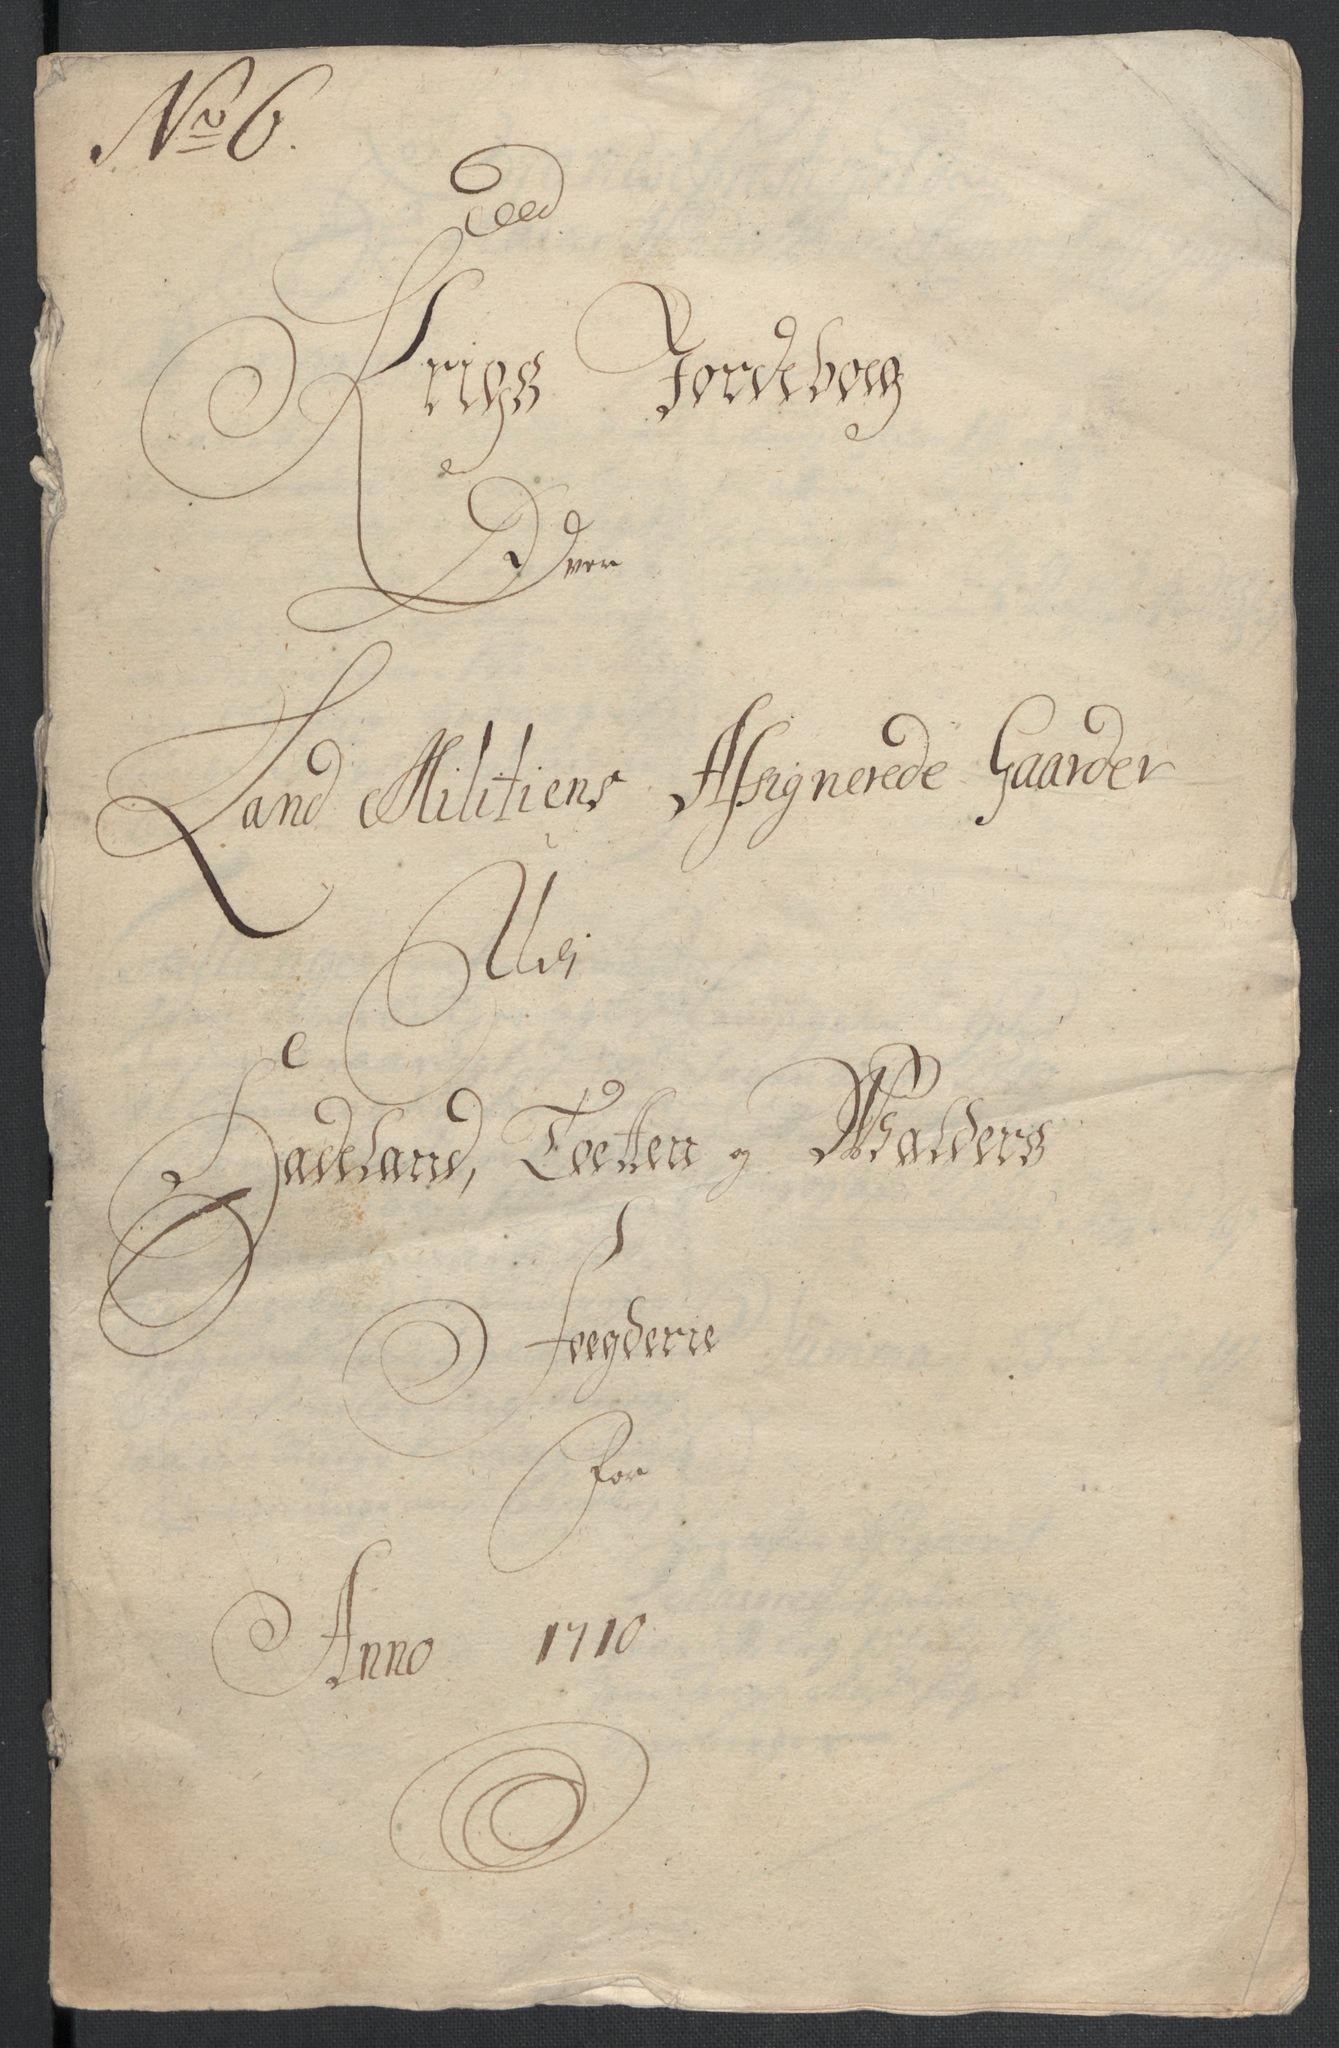 No 6.
Krigs Jordeboeg
Over
Land Militiens Assignerede Gaarder
Udi
Hadeland, Toetten og Walders
Foegderie
for
Anno 1710